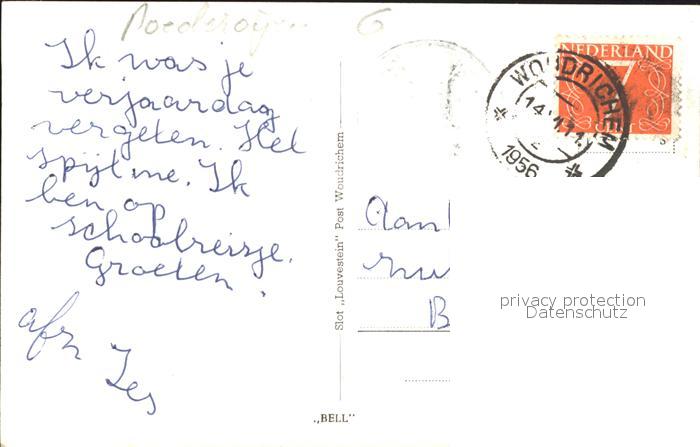 Ik was je
verjaardag
vergeten. Het
spijt me. Ik
ben op
schoolreisje.
Groeten.
afz
6
NEDERLAND
7
WOUDRICHEM
1956
Slot „Louvestein" Post Woudrichem
Aan
B
privacy protection
Datenschutz
„BELL"